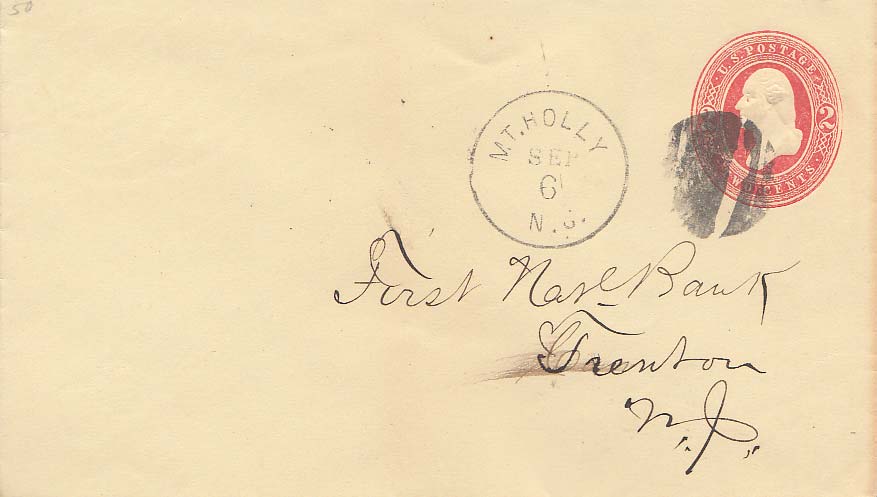 50
U.S. POSTAGE
2 2
TWO CENTS
MT. HOLLY
SEP
6
N.J.
First Natl Bank
Trenton
N.J.